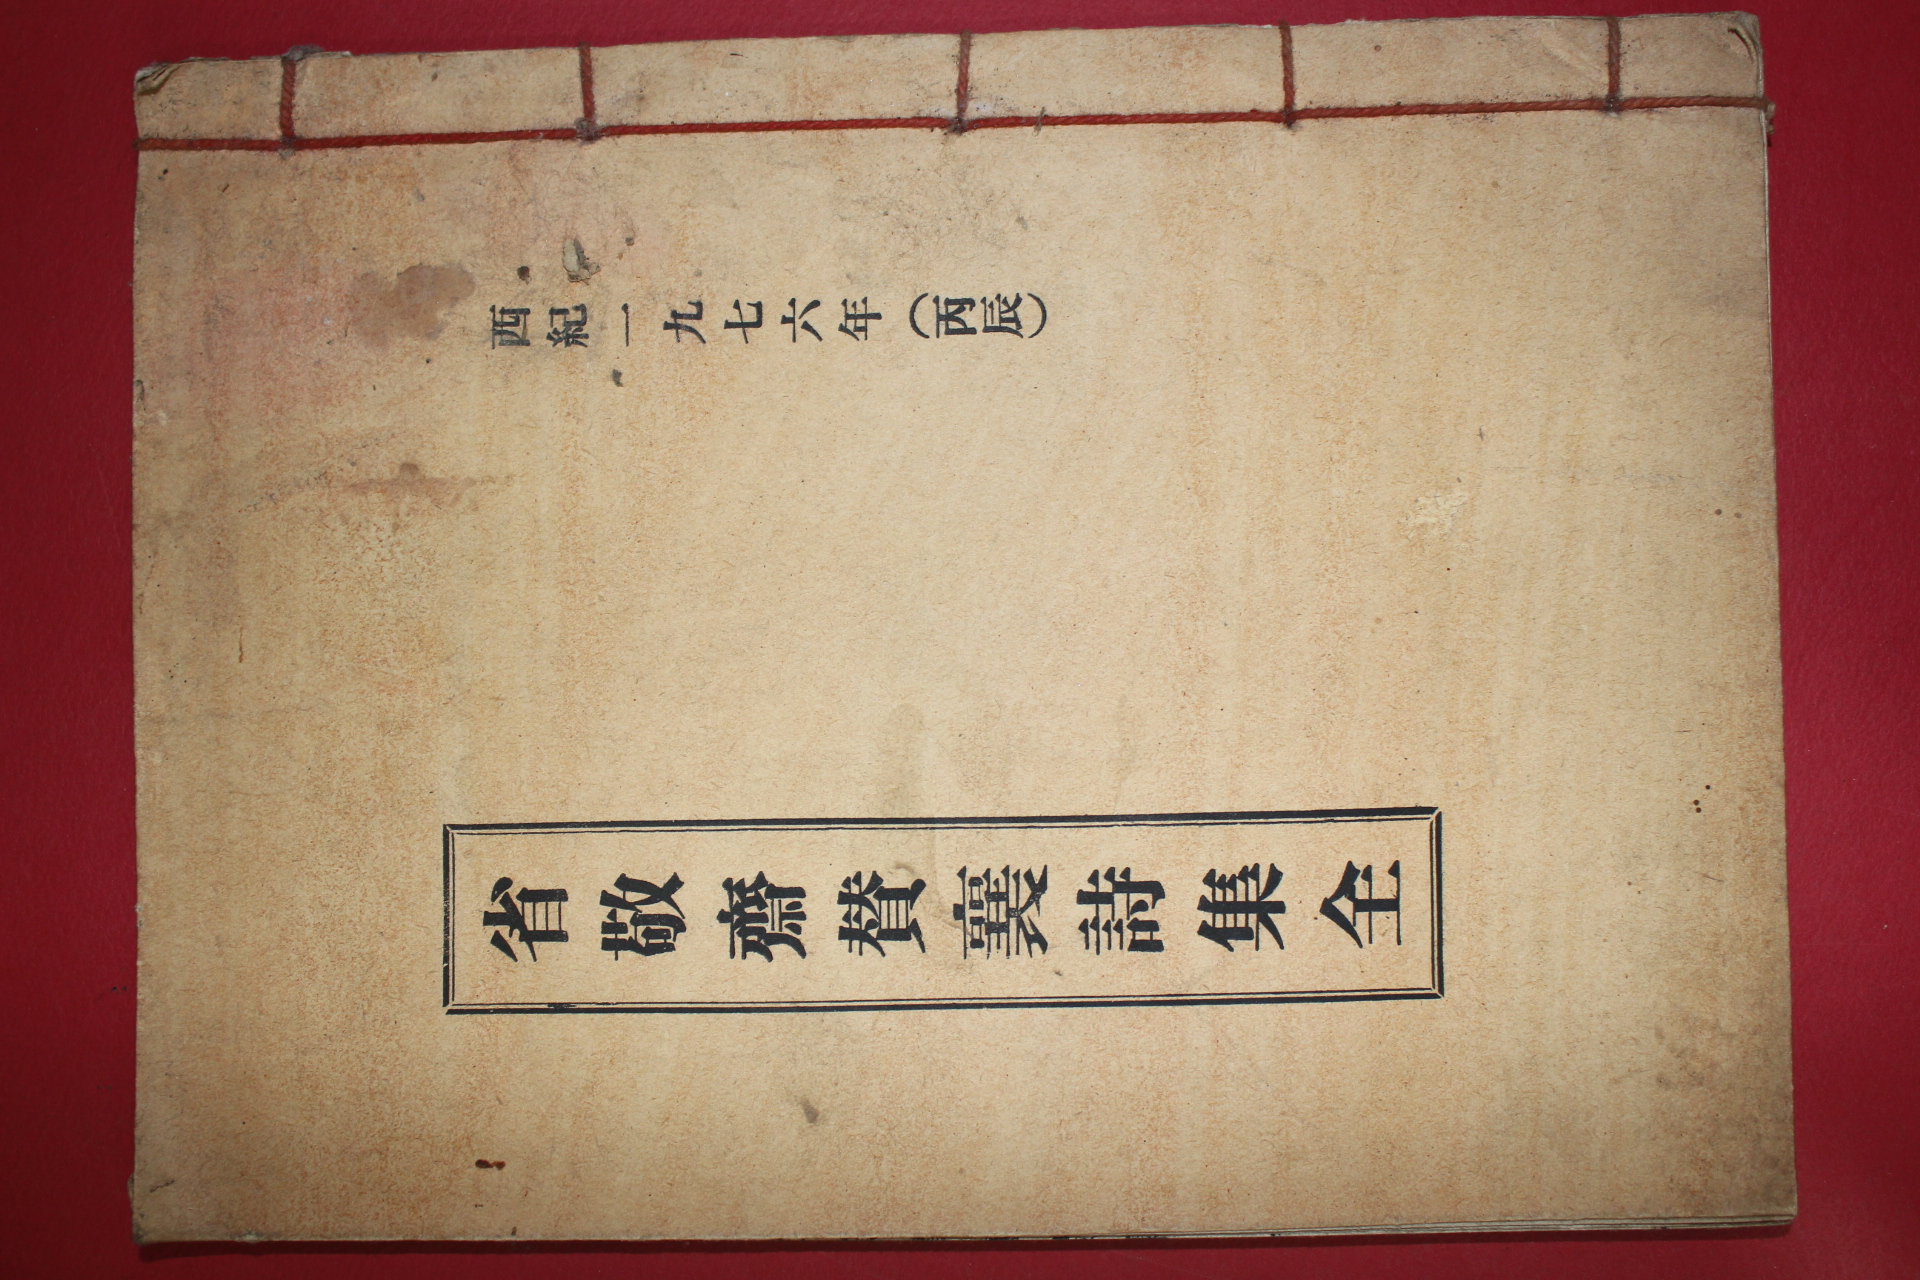 西紀一九七六年(丙辰)
省敬齋賛襄詩集全